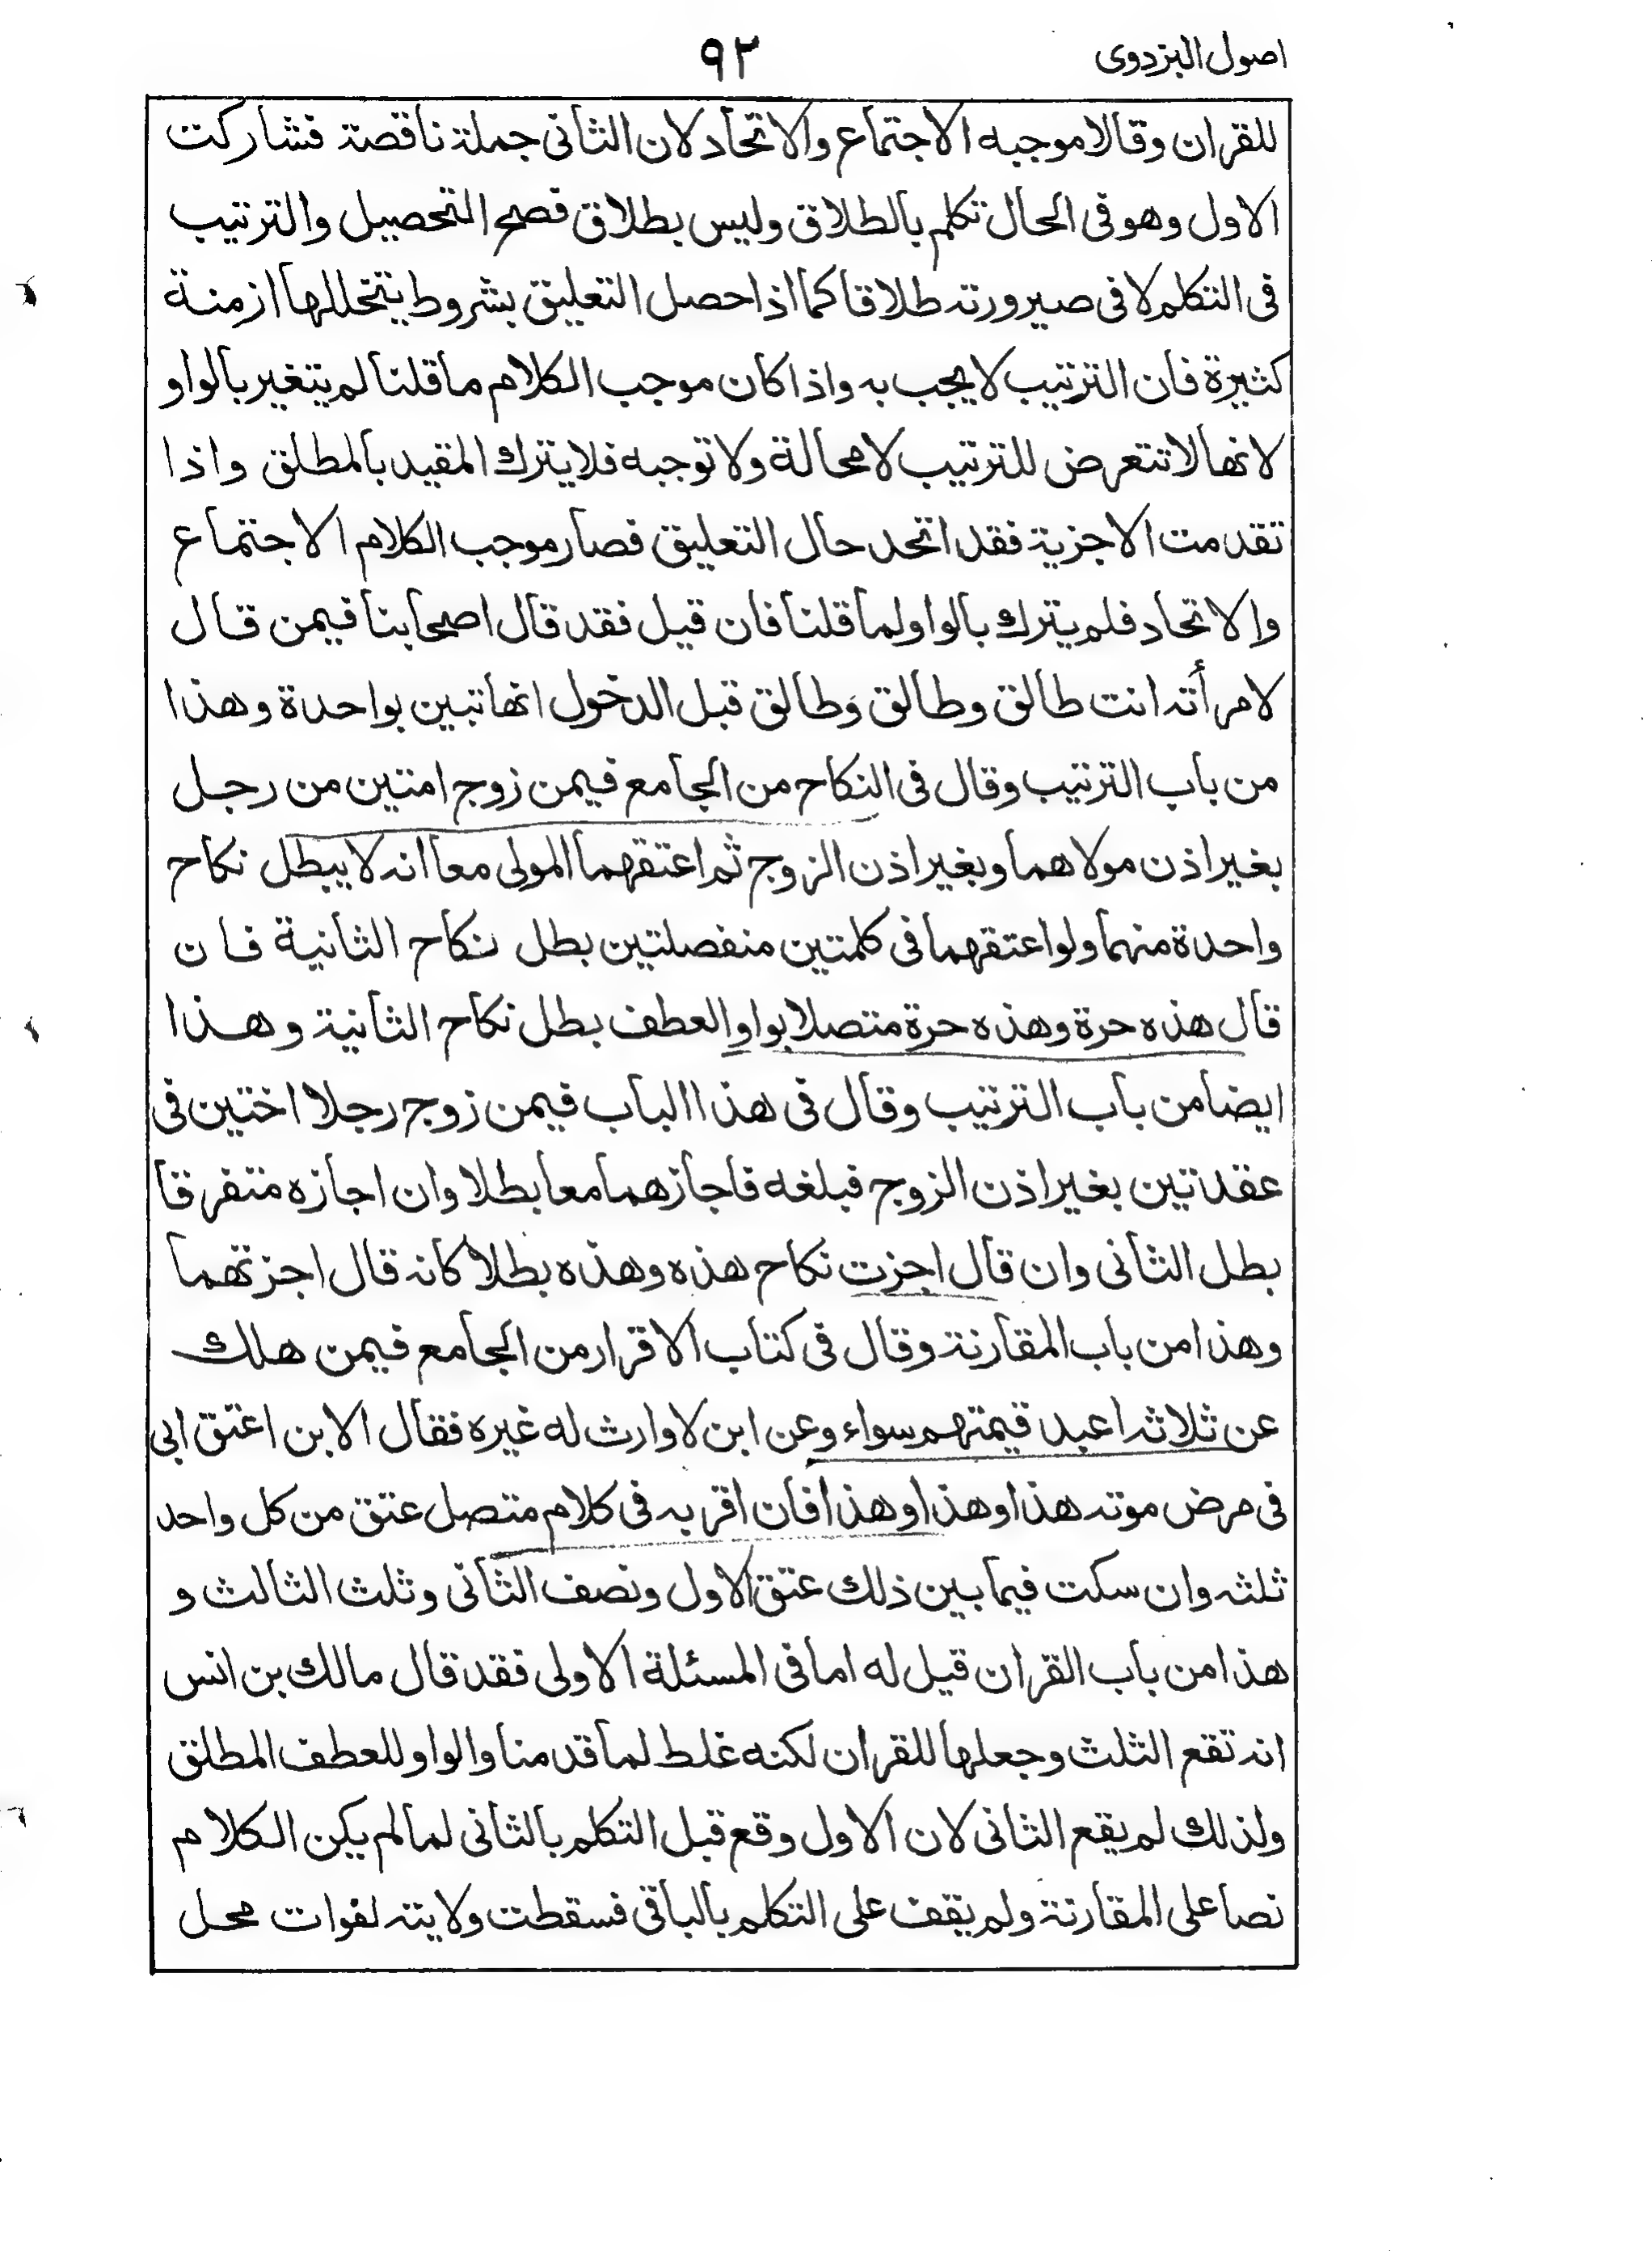 اصول البزدوى
٩٢
للقران وقالا موجبه الاجتماع والاتحاد لان الثانى جملة ناقصة فشاركت
الاول وهو فى الحال تكلم بالطلاق وليس بطلاق فصح التحصيل والترتيب
فى التكلم لا فى صيرورته طلاقا كما اذا حصل التعليق بشروط يتخللها ازمنة
كثيرة فان الترتيب لا يجب به واذا كان موجب الكلام ما قلنا لم يتغير بالواو
لانها لا تتعرض للترتيب لا محالة ولا توجبه فلا يترك المقيد بالمطلق واذا
تقدمت الاجزية فقد اتحد حال التعليق فصار موجب الكلام الاجتماع
والاتحاد فلم يترك بالواو لما قلنا فان قيل فقد قال اصحابنا فيمن قال
لامرأته انت طالق وطالق وَطالق قبل الدخول انها تبين بواحدة وهذا
من باب الترتيب وقال فى النكاح من الجامع فيمن زوج امتين من رجل
بغير اذن مولاهما وبغير اذن الزوج ثم اعتقهما المولى معا انه لا يبطل نكاح
واحدة منهما ولو اعتقهما فى كلمتين منفصلتين بطل نكاح الثانية فان
قال هذه حرة وهذه حرة متصلا بواو العطف بطل نكاح الثانية وهذا
ايضا من باب الترتيب وقال فى هذا الباب فيمن زوج رجلا اختين فى
عقدتين بغير اذن الزوج فبلغه فاجازهما معا بطلا وان اجازه متفرقا
بطل الثانى وان قال اجزت نكاح هذه وهذه بطلا كانه قال اجزتهما
وهذا من باب المقارنة وقال فى كتاب الاقرار من الجامع فيمن هلك
عن ثلاثة اعبد قيمتهم سواء وعن ابن لا وارث له غيره فقال الابن اعتق ابى
فى مرض موته هذا وهذا وهذا فان اقر به فى كلام متصل عتق من كل واحد
ثلثه وان سكت فيما بين ذلك عتق الاول ونصف الثانى وثلث الثالث و
هذا من باب القران قيل له اما فى المسئلة الاولى فقد قال مالك بن انس
انه تقع الثلث وجعلها للقران لكنه غلط لما قدمنا والواو للعطف المطلق
ولذلك لم يقع الثانى لان الاول وقع قبل التكلم بالثانى لما لم يكن الكلام
نصا على المقارنة ولم يقف على التكلم بالباقى فسقطت ولايته لفوات محل